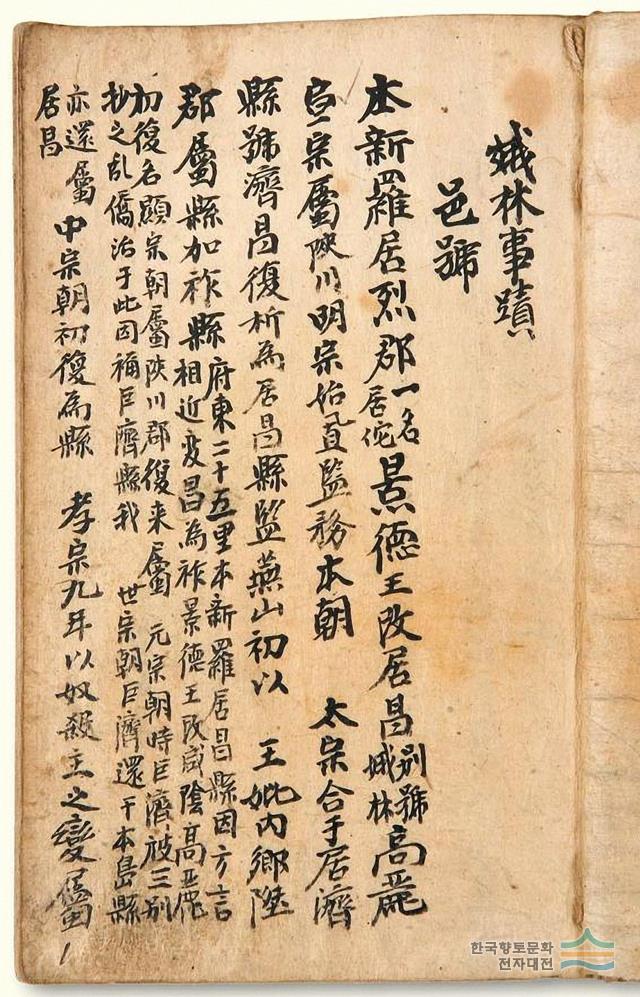 娥林事蹟
邑號
本新羅居烈郡一名居佗景德王改居昌別號娥林高麗
宣宗屬陜川明宗始置監務本朝 太宗合于居濟
縣號濟昌復析為居昌縣監燕山初以 王妣内鄉陞
郡屬縣加祚縣府東二十五里本新羅居昌縣因方言
相近变昌為祚景德王改咸陰高麗
初復名顯宗朝屬陜川郡復来屬 元宗朝時巨濟被三別
抄之乱僑治于此因稱巨濟縣我 世宗朝巨濟還于本島縣
亦還屬
居昌
中宗朝初復為縣 孝宗九年以奴殺主之變屬
한국향토문화
전자대전